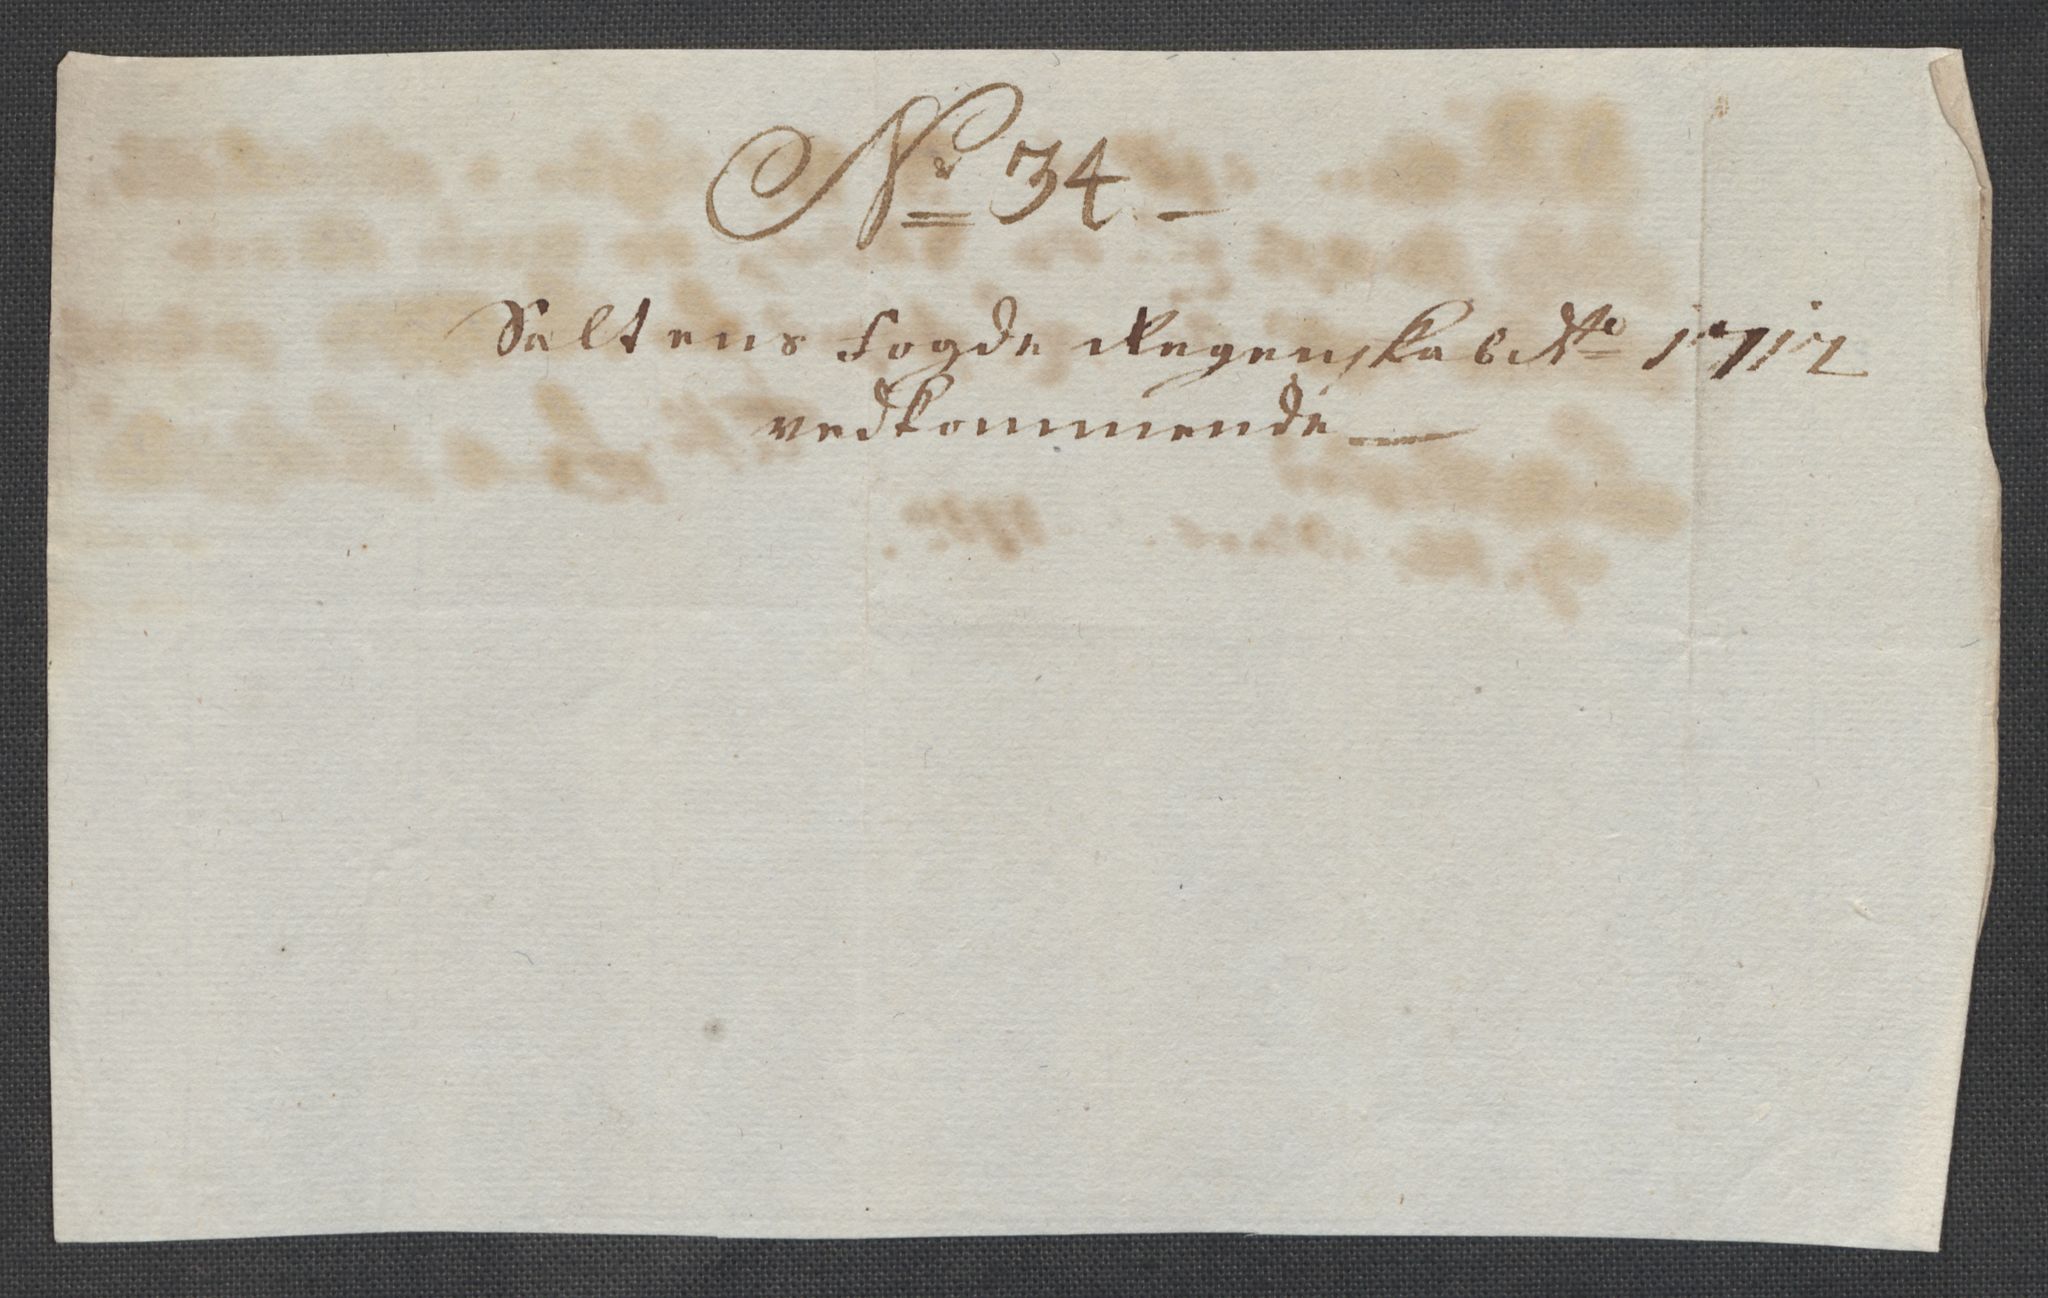 Nr 34
Saltens fogde Regenskab Ao 1712
vedkommende